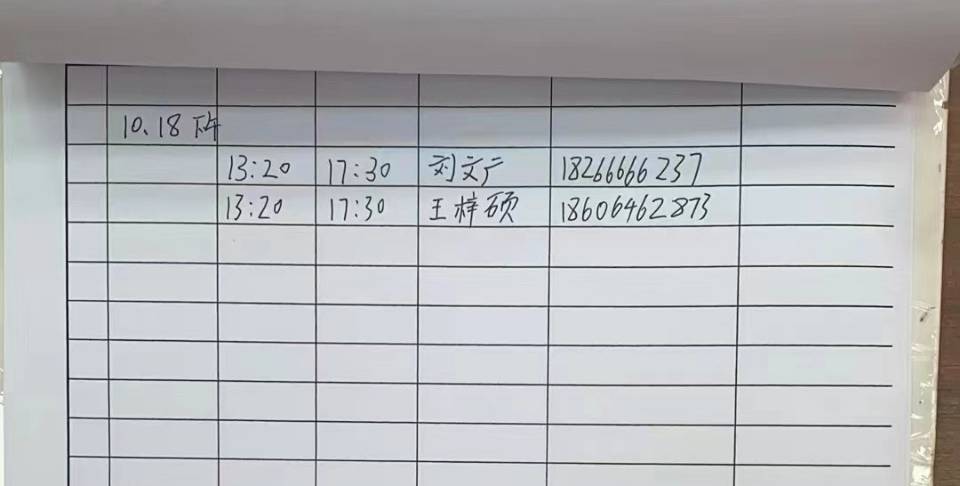 10.18 下午
13:20 17:30 刘文广 18266666237
13:20 17:30 王梓硕 18606462873